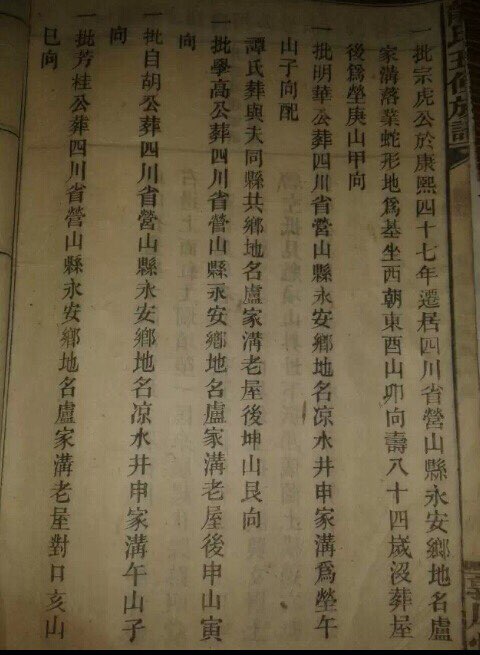 一批宗虎公於康熙四十七年遷居四川省營山縣永安鄉地名盧
家溝落業蛇形地爲基坐西朝東酉山卯向壽八十四歲沒葬屋
後爲塋庚山甲向
一批明華公葬四川省營山縣永安鄉地名凉水井申家溝爲塋午
山子向配
譚氏葬與夫同縣共鄉地名盧家溝老屋後坤山艮向
一批學高公葬四川省營山縣永安鄉地名盧家溝老屋後申山寅
向
一批自胡公葬四川省營山縣永安鄉地名凉水井申家溝午山子
向
一批芳桂公葬四川省營山縣永安鄉地名盧家溝老屋對口亥山
巳向